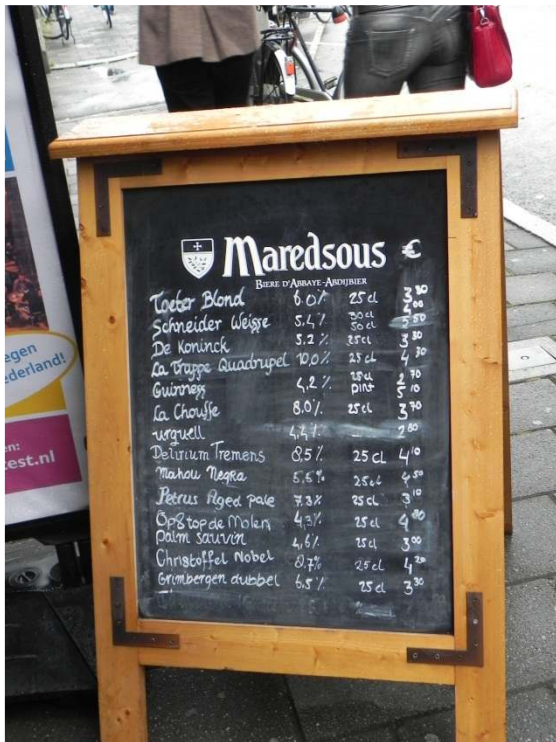 Maredsous €
BIERE D'ABBAYE-ABDIJBIER
Toeter Blond 6.0% 25cl 3 80
Schneider Weisse 5.4% 30cl 50cl 00 5 50
De Koninck 5.2% 25cl 3 30
La Trappe Quadrupel 10,0% 25cl 4 30
Guinness 4,2% 25cl pint 2 70 5 10
La Chouffe 8,0% 25cl 3 70
urquell 4,4% 2 80
Delirium Tremens 8,5% 25cl 4 10
Mahou Negra 5,5% 25cl 4 50
Petrus Aged pale 7.3% 25cl 3 10
Op&top de Molen 4,3% 25cl 4 80
palm sauvin 4,6% 25cl 3 00
Christoffel Nobel 8.7% 25cl 4 20
Grimbergen dubbel 6,5% 25cl 3 30
egen
ederland!
en:
est.nl